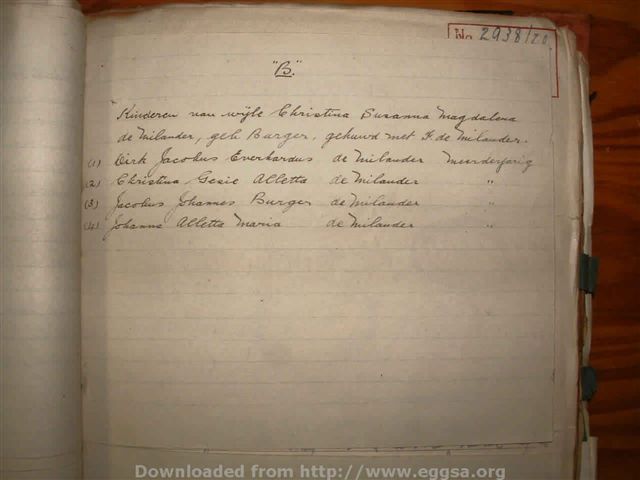 No 2938/20
"B."
Kinderen van wijle Christina Susanna Magdalena
de Milander, geb. Burger, gehuwd met F. de Milander.
(1) Dirk Jacobus Everhardus de Milander minderjarig
(2) Christina Gesie Alletta de Milander "
(3) Jacobus Johannes Burger de Milander "
(4) Johanna Alletta Maria de Milander "
Downloaded from http://www.eggsa.org